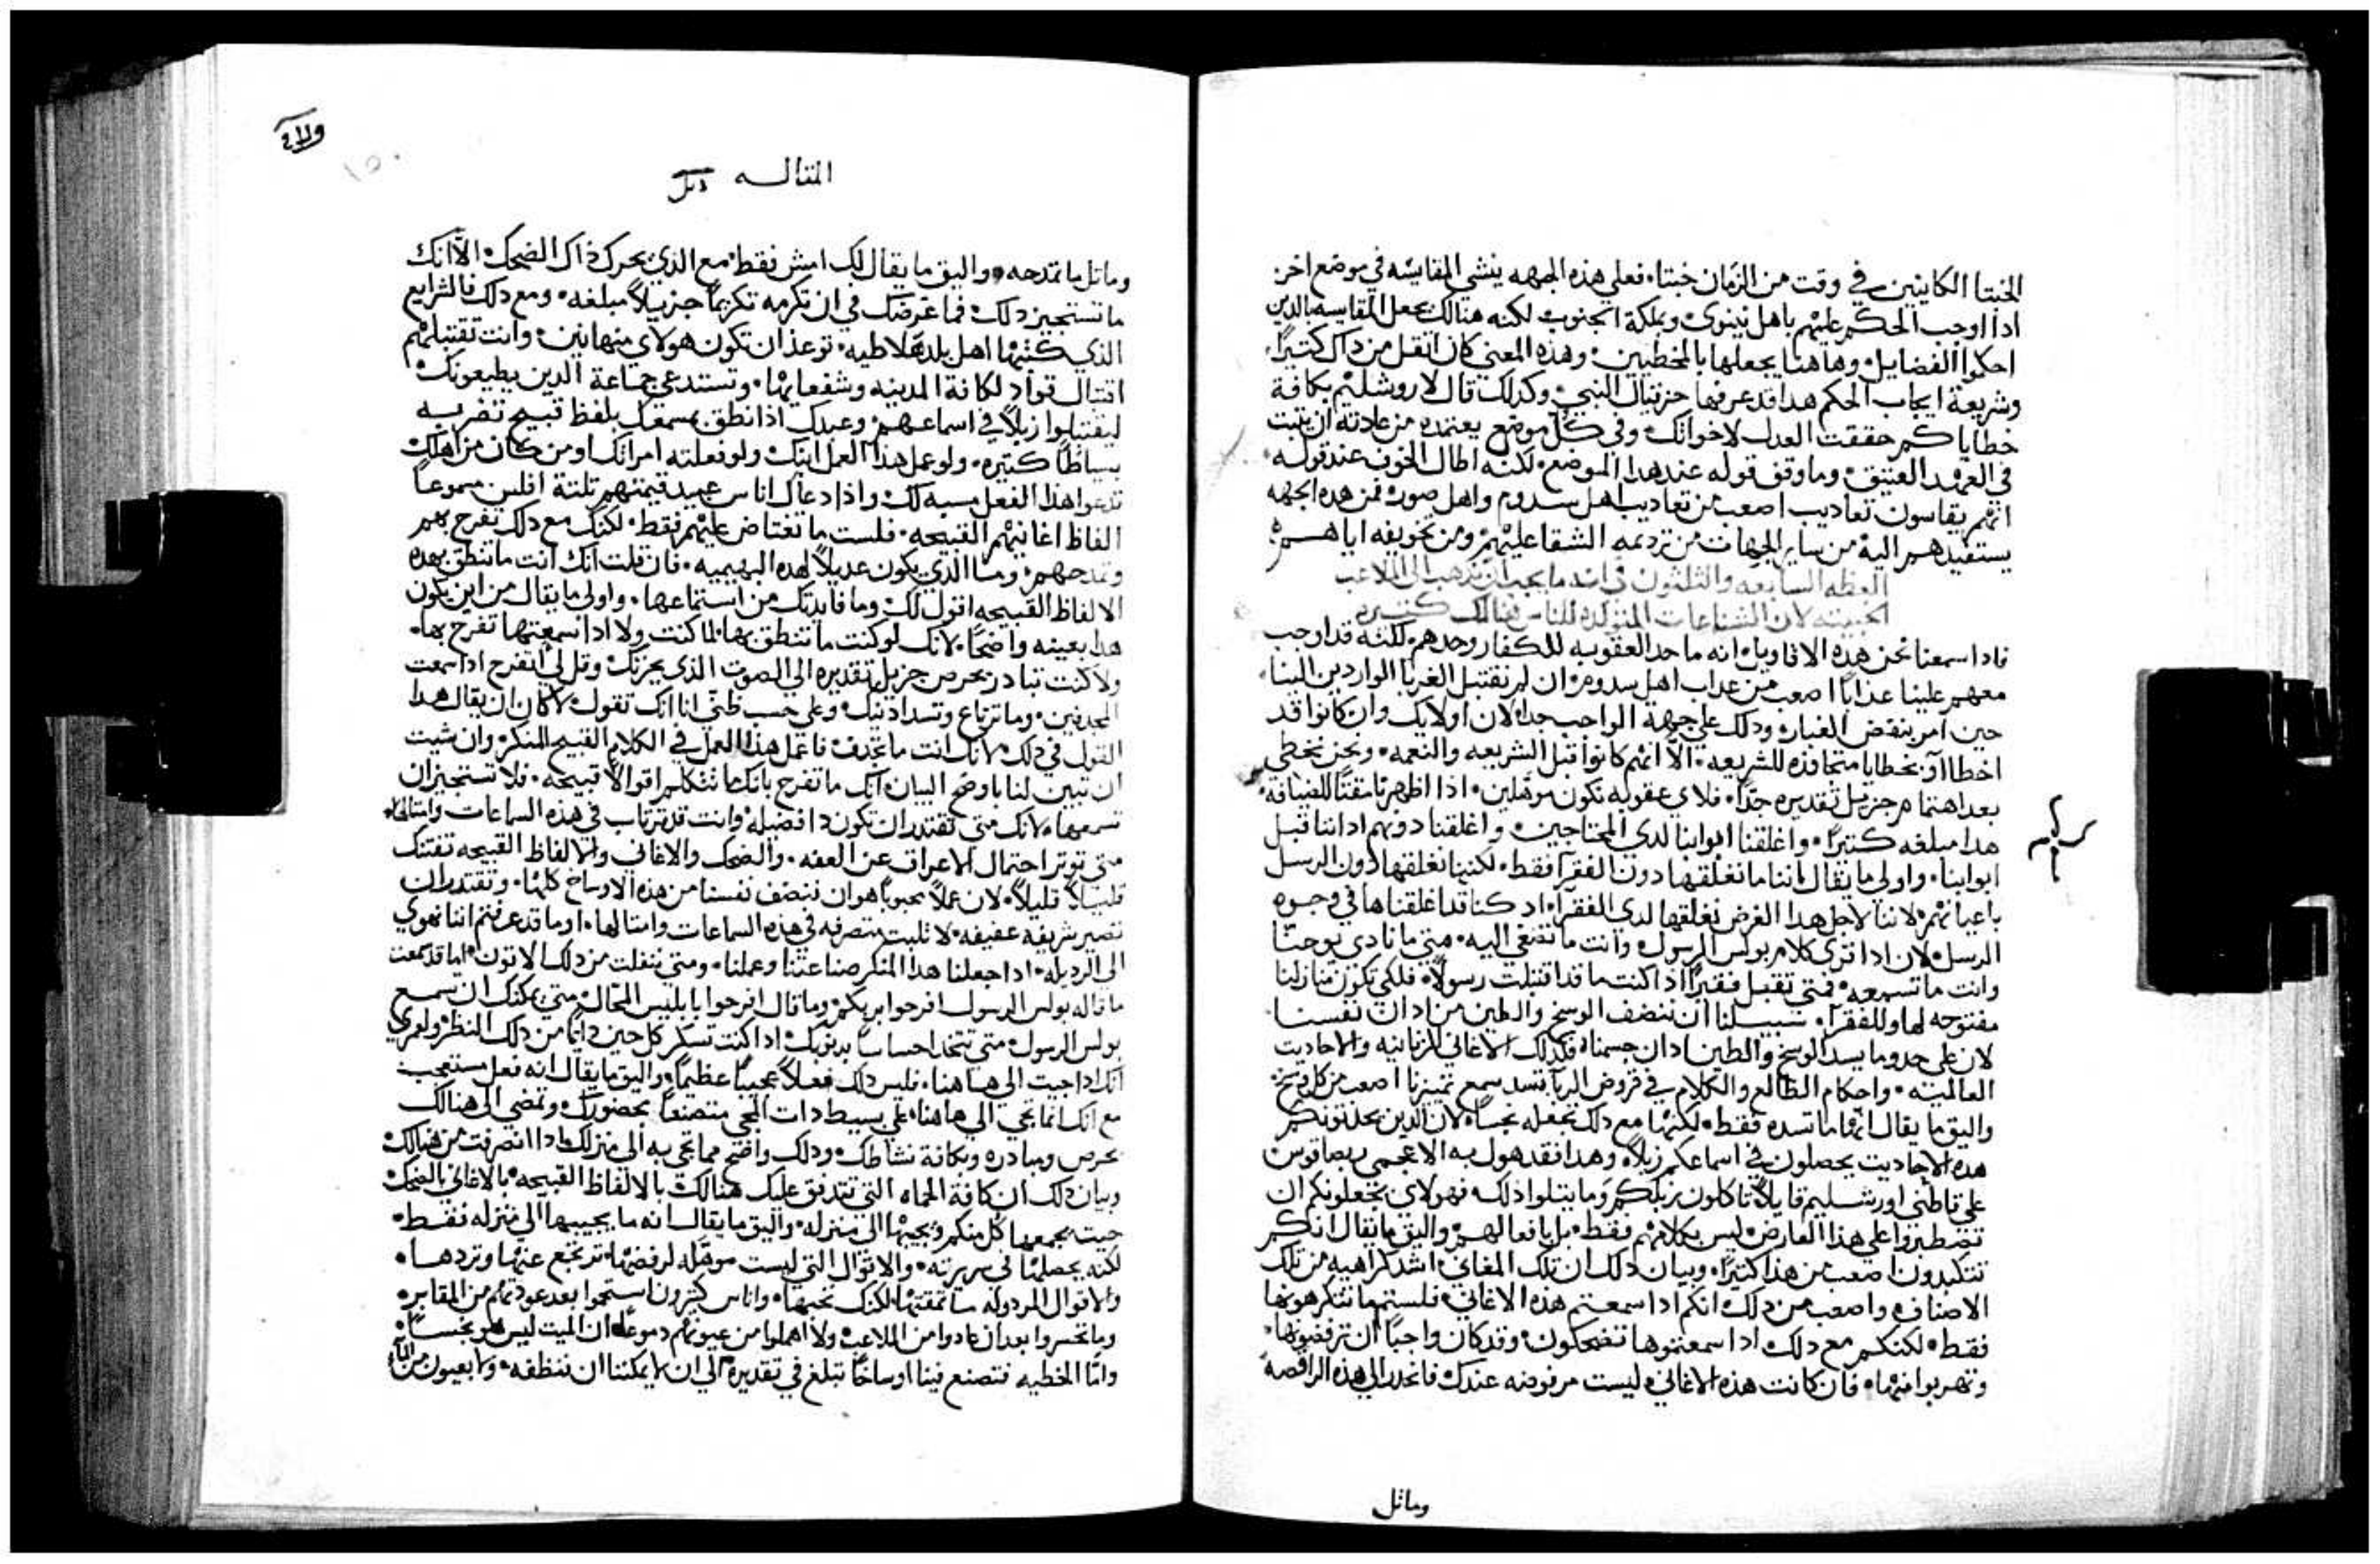 الخبتا الكاينين في وقت من الزمان خبتا، فعلي هذه الجهه ينشي المقايسه في موضع اخر
اذا اوجب الحكم عليهم باهل نينوي وبملكة الجنوب لكنه هنالك يجعل المقايسه بالدين
احكموا الفضايل وهاهنا يجعلها بالمخطيين وهذه المعني كان اثقل من داك كتيرًا
وشريعة ايجاب الحكم هدا قد عرفها حزقيال النبي وكدلك قال لاروشليم بكافة
خطاياكم حققت العدل لاخواتك وفي كل موضع يعتمد من عادته ان يتبت
في العهد العتيق وما وقف قوله عند هدا الموضع لكنه اطال الخوف عند قوله
انهم يقاسون تعاديب اصعب من تعاديب اهل سدوم واهل صور فمن هده الجهه
يستفيدهم اليه من ساير الجهات من ترديه الشقا عليهم ومن تخويفه اياهم
العظه السابعه والثلثون في انه ما يجب ان تذهب الي الملاعب
الخبيته لان الشناعات المتولده للناس هنالك كتيره
فادا سمعنا نحن هده الاقاويل انه ما حد العقوبه للكفار وحدهم لكنه قد اوجب
معهم علينا عدابًا اصعب من عداب اهل سدوم ان لم نقتبل الغربا الواردين الينا
حين امر بنفض الغبار ودلك علي جهة الواجب جدا لان اولايك وان كانوا قد
اخطااو بخطايا متجاوزه للشريعه الا انهم كانوا قبل الشريعه والنعمه ونحن نخطي
بعد اهتمام جزيل تقديره جدًا فلاي عقوبه نكون موهلين اذا اظهرنا مقتًا للضيافه
هدا مبلغه كتيرًا واغلقنا ابوابنا لدي المحتاجين واغلقنا دونهم اداننا قبل
ابوابنا واولي ما يقال اننا ما نغلقها دون الفقرآ فقط لكننا نغلقها دون الرسل
باعيانهم لاننا لاجل هدا الغرض نغلقها لدي الفقرآ اد كنا قد اغلقناها في وجوه
الرسل لان ادا قري كلام بولس الرسول وانت ما تصغي اليه متي ما نادي يوحنا
وانت ما تسمعه فمتي تقبل فقيرًا اذا كنت ما قد اقتبلت رسولاً فلكي تكون منازلنا
مفتوحه لها وللفقرآ سبيلنا ان ننضف الوسخ والطين من ادان نفسنا
لان علي حدو ما يسد الوسخ والطين ادان جسمنا فكدلك الاغاني الزنانيه والاحاديت
العالميه واحكام الطالع والكلام في قروض الربا تسد سمع تمييزنا اصعب من كل وسخ
واليق ما يقال انها ما تسده فقط لكنها مع دلك تجعله نجسا لان الدين يحدتونكم
هده الاحاديت يحصلون في اسماعكم زبلاً وهدا فقد هول به الاعجمي ربصاقوس
علي قاطني اورشليم قايلاً تاكلون زبلكم وما يتلوا ذلك فهولاي يجعلونكم ان
تضطبروا علي هذا العارض ليس بكلامهم فقط بل بافعالهم واليق ما يقال انكم
تتكبدون اصعب من هذا كتيرًا وبيان دلك ان تلك المغاني اشد كراهيه من تلك
الاصناف واصعب من دلك انكم اذا سمعتم هذه الاغاني فلستم ما تتكرهونها
فقط لكنكم مع دلك ادا سمعتموها تضحكون وقد كان واجبًا ان ترفضوها
وتهربوا منها فان كانت هذه الاغاني ليست مرفوضه عندك فانحدر الي هذه الراقصه
وماتل
المقاله
وماتل ما تمدحه واليق ما يقال لك امش فقط مع الدي يحرك ذاك الضحك الا انك
ما تستجيز دلك فما غرضك في ان تكرمه تكريمًا جزيلاً مبلغه ومع دلك فالشرايع
الذي كتبها اهل بلد هلاطيه توعز ان تكون هولاي منهانين وانت تقتبلهم
اقتبال قواد لكافة المدينه وشفعايها وتستدعي جماعة الدين يطيعونك
ليقتبلوا زبلاً في اسماعهم وعبدك اذا نطق بسمعك بلفظ قبيح تضربه
سياطًا كتيره ولو عمل هدا العمل ابنك ولو فعلته امراتك او من كان من اهلك
تدعوا هذا الفعل مسبه لك واذا دعاك اناس عبيد قيمتهم تلتة افلس مسموعًا
الفاظ اغانيهم القبيحه فلست ما تغتاض عليهم فقط لكنك مع دلك تفرح بهم
وتمدحهم وما الذي يكون عديلاً لهده البهيميه فان قلت انك انت ما تنطق بهده
الالفاظ القبيحه اقول لك وما فايدتك من استماعها واولي ما يقال من اين يكون
هدا بعينه واضحًا لانك لو كنت ما تنطق بها لما كنت ولا ادا سمعتها تفرح بها
ولا كنت تبادر بحرص جزيل تقديره الي الصوت الذي يخزيك وقل لي اتفرح ادا سمعت
المجدفين وما ترتاع وتسد ادنيك وعلي حسب ظني انا انك تقول لا كان ان يقال هدا
القول في دلك لانك انت ما تجدف فاعمل هذا العمل في الكلام القبيح المنكر وان شيت
ان تبين لنا باوضح البيان انك ما تفرح بانك ما تتكلم اقوالاً قبيحه فلا تستجيز ان
تسمعها لانك متي تقتدر ان تكون دا فضيله وانت قد تربي في هذه السماعات وامتالها
متي توثر احتمال الاعراق عن العفه والضحك والاغاني والالفاظ القبيحه تفتنك
قليلاً قليلاً لان عملاً محبوبًا هو ان ننضف نفسنا من هذه الاوساخ كلها وتقتدر ان
تصير شريفه عفيفه لا تلبت متصرفه في هذه السماعات وامتالها او ما قد عرفتم اننا نهوي
الي الرديله ادا جعلنا هدا المنكر صناعتنا وعملنا ومتي ننفلت من دلك الاتون اما قد سمعت
ما قاله بولس الرسول افرحوا بربكم وما قال افرحوا بابليس المحال متي يمكنك ان تسمع
بولس الرسول متي تتخد احساسًا بدنوبك ادا كنت تسكر كل حين دايمًا من دلك النظر ولعمري
انك ادا جيت الي هاهنا فليس دلك فعلاً عجيبًا عظيمًا واليق ما يقال انه فعل مستعجب
مع انك انما تجي الي هاهنا علي بسيط دات المجي متصنعًا بحضورك وتمضي الي هنالك
بحرص ومبادره وبكافة نشاطك ودلك واضح مما تجي به الي منزلك ادا انصرفت من هنالك
وبيان دلك ان كافة الحماه التي تتدفق عليك هنالك بالالفاظ القبيحه بالاغاني بالضحك
حيت يجمعها كل منكم ويجيبها الي منزله واليق ما يقال انه ما يجيبها الي منزله فقط
لكنه يحصلها في سريرته والاقوال التي ليست موهله لرفضها ترتجع عنها وتردها
والاقوال المردوله ما تمقتها لكنك تحبها واناس كثيرون استحموا بعد عودتهم من المقابر
وما تحسروا بعد ان عادوا من الملاعب ولا اهملوا من عيونهم دموعًا ان الميت ليس هو نجسًا
وانا الخطيه فتصنع فينا اوساخًا تبلغ في تقديره الي ان لا يمكننا ان ننظفه ولا بعيون من المآ